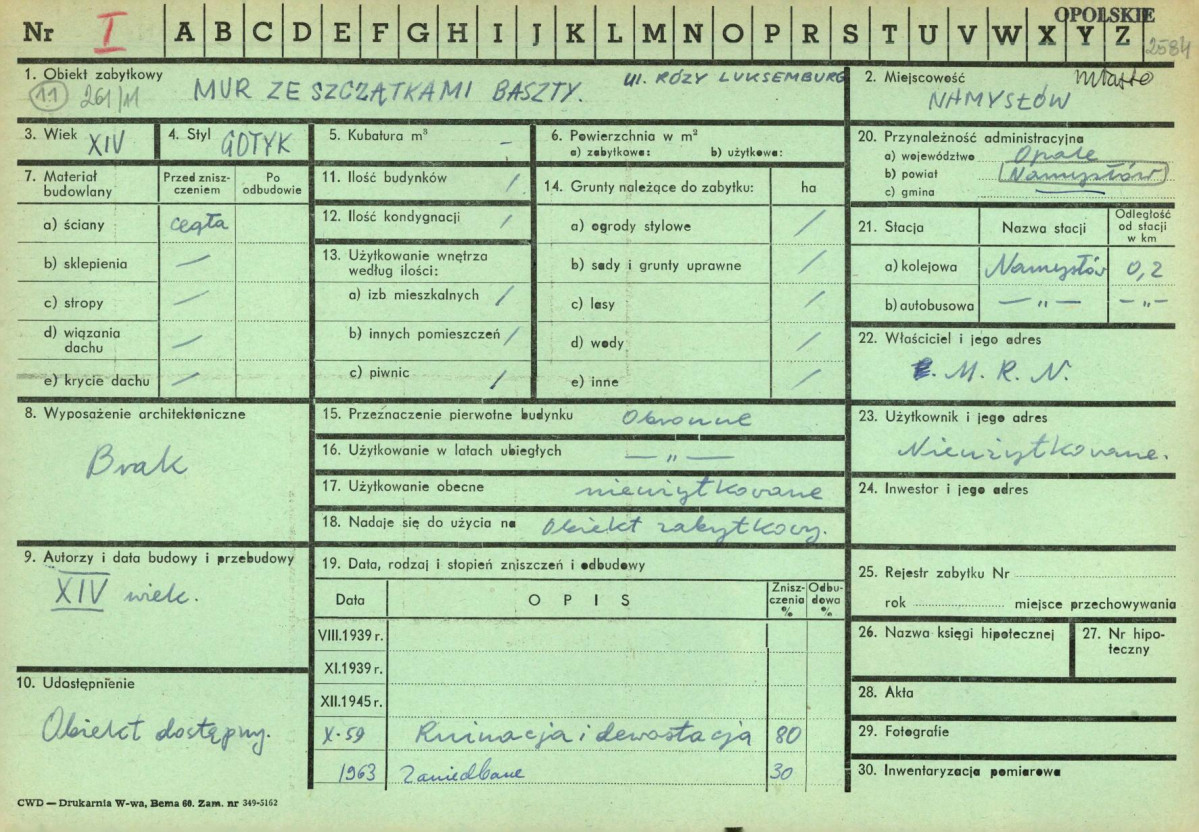 OPOLSKIE
Nr I A B C D E F G H I J K L M N O P R S T U V W X Y Z 2584
1. Obiekt zabytkowy
11 261/11 MUR ZE SZCZĄTKAMI BASZTY. ul. RÓŻY LUKSEMBURG
2. Miejscowość miasto
NAMYSŁÓW
3. Wiek XIV
4. Styl GOTYK
5. Kubatura m³ –
6. Powierzchnia w m²
a) zabytkowa: b) użytkowa:
20. Przynależność administracyjna
a) województwo Opole
b) powiat Namysłów
c) gmina
7. Materiał budowlany
Przed zniszczeniem
Po odbudowie
a) ściany cegła
b) sklepienia —
c) stropy /
d) wiązania dachu /
e) krycie dachu /
11. Ilość budynków /
12. Ilość kondygnacji /
13. Użytkowanie wnętrza
według ilości:
a) izb mieszkalnych /
b) innych pomieszczeń /
c) piwnic /
14. Grunty należące do zabytku: ha
a) ogrody stylowe /
b) sady i grunty uprawne /
c) lasy /
d) wody /
e) inne /
21. Stacja
Nazwa stacji
Odległość od stacji w km
a) kolejowa Namysłów 0,2
b) autobusowa — „ — — „ —
22. Właściciel i jego adres
M. R. N.
8. Wyposażenie architektoniczne
Brak
15. Przeznaczenie pierwotne budynku Obronne
16. Użytkowanie w latach ubiegłych — „ —
17. Użytkowanie obecne nieużytkowane
18. Nadaje się do użycia na Obiekt zabytkowy.
23. Użytkownik i jego adres
Nieużytkowane.
24. Inwestor i jego adres
9. Autorzy i data budowy i przebudowy
XIV wiek.
19. Data, rodzaj i stopień zniszczeń i odbudowy
Data OPIS Zniszczenia % Odbudowa %
VIII.1939 r.
XI.1939 r.
XII.1945 r.
X-59 Ruinacja i dewastacja 80
1963 Zaniedbane 30
25. Rejestr zabytku Nr
rok miejsce przechowywania
26. Nazwa księgi hipotecznej
27. Nr hipoteczny
10. Udostępnienie
Obiekt dostępny.
28. Akta
29. Fotografie
30. Inwentaryzacja pomiarowa
CWD — Drukarnia W-wa, Bema 60. Zam. nr 349-5162